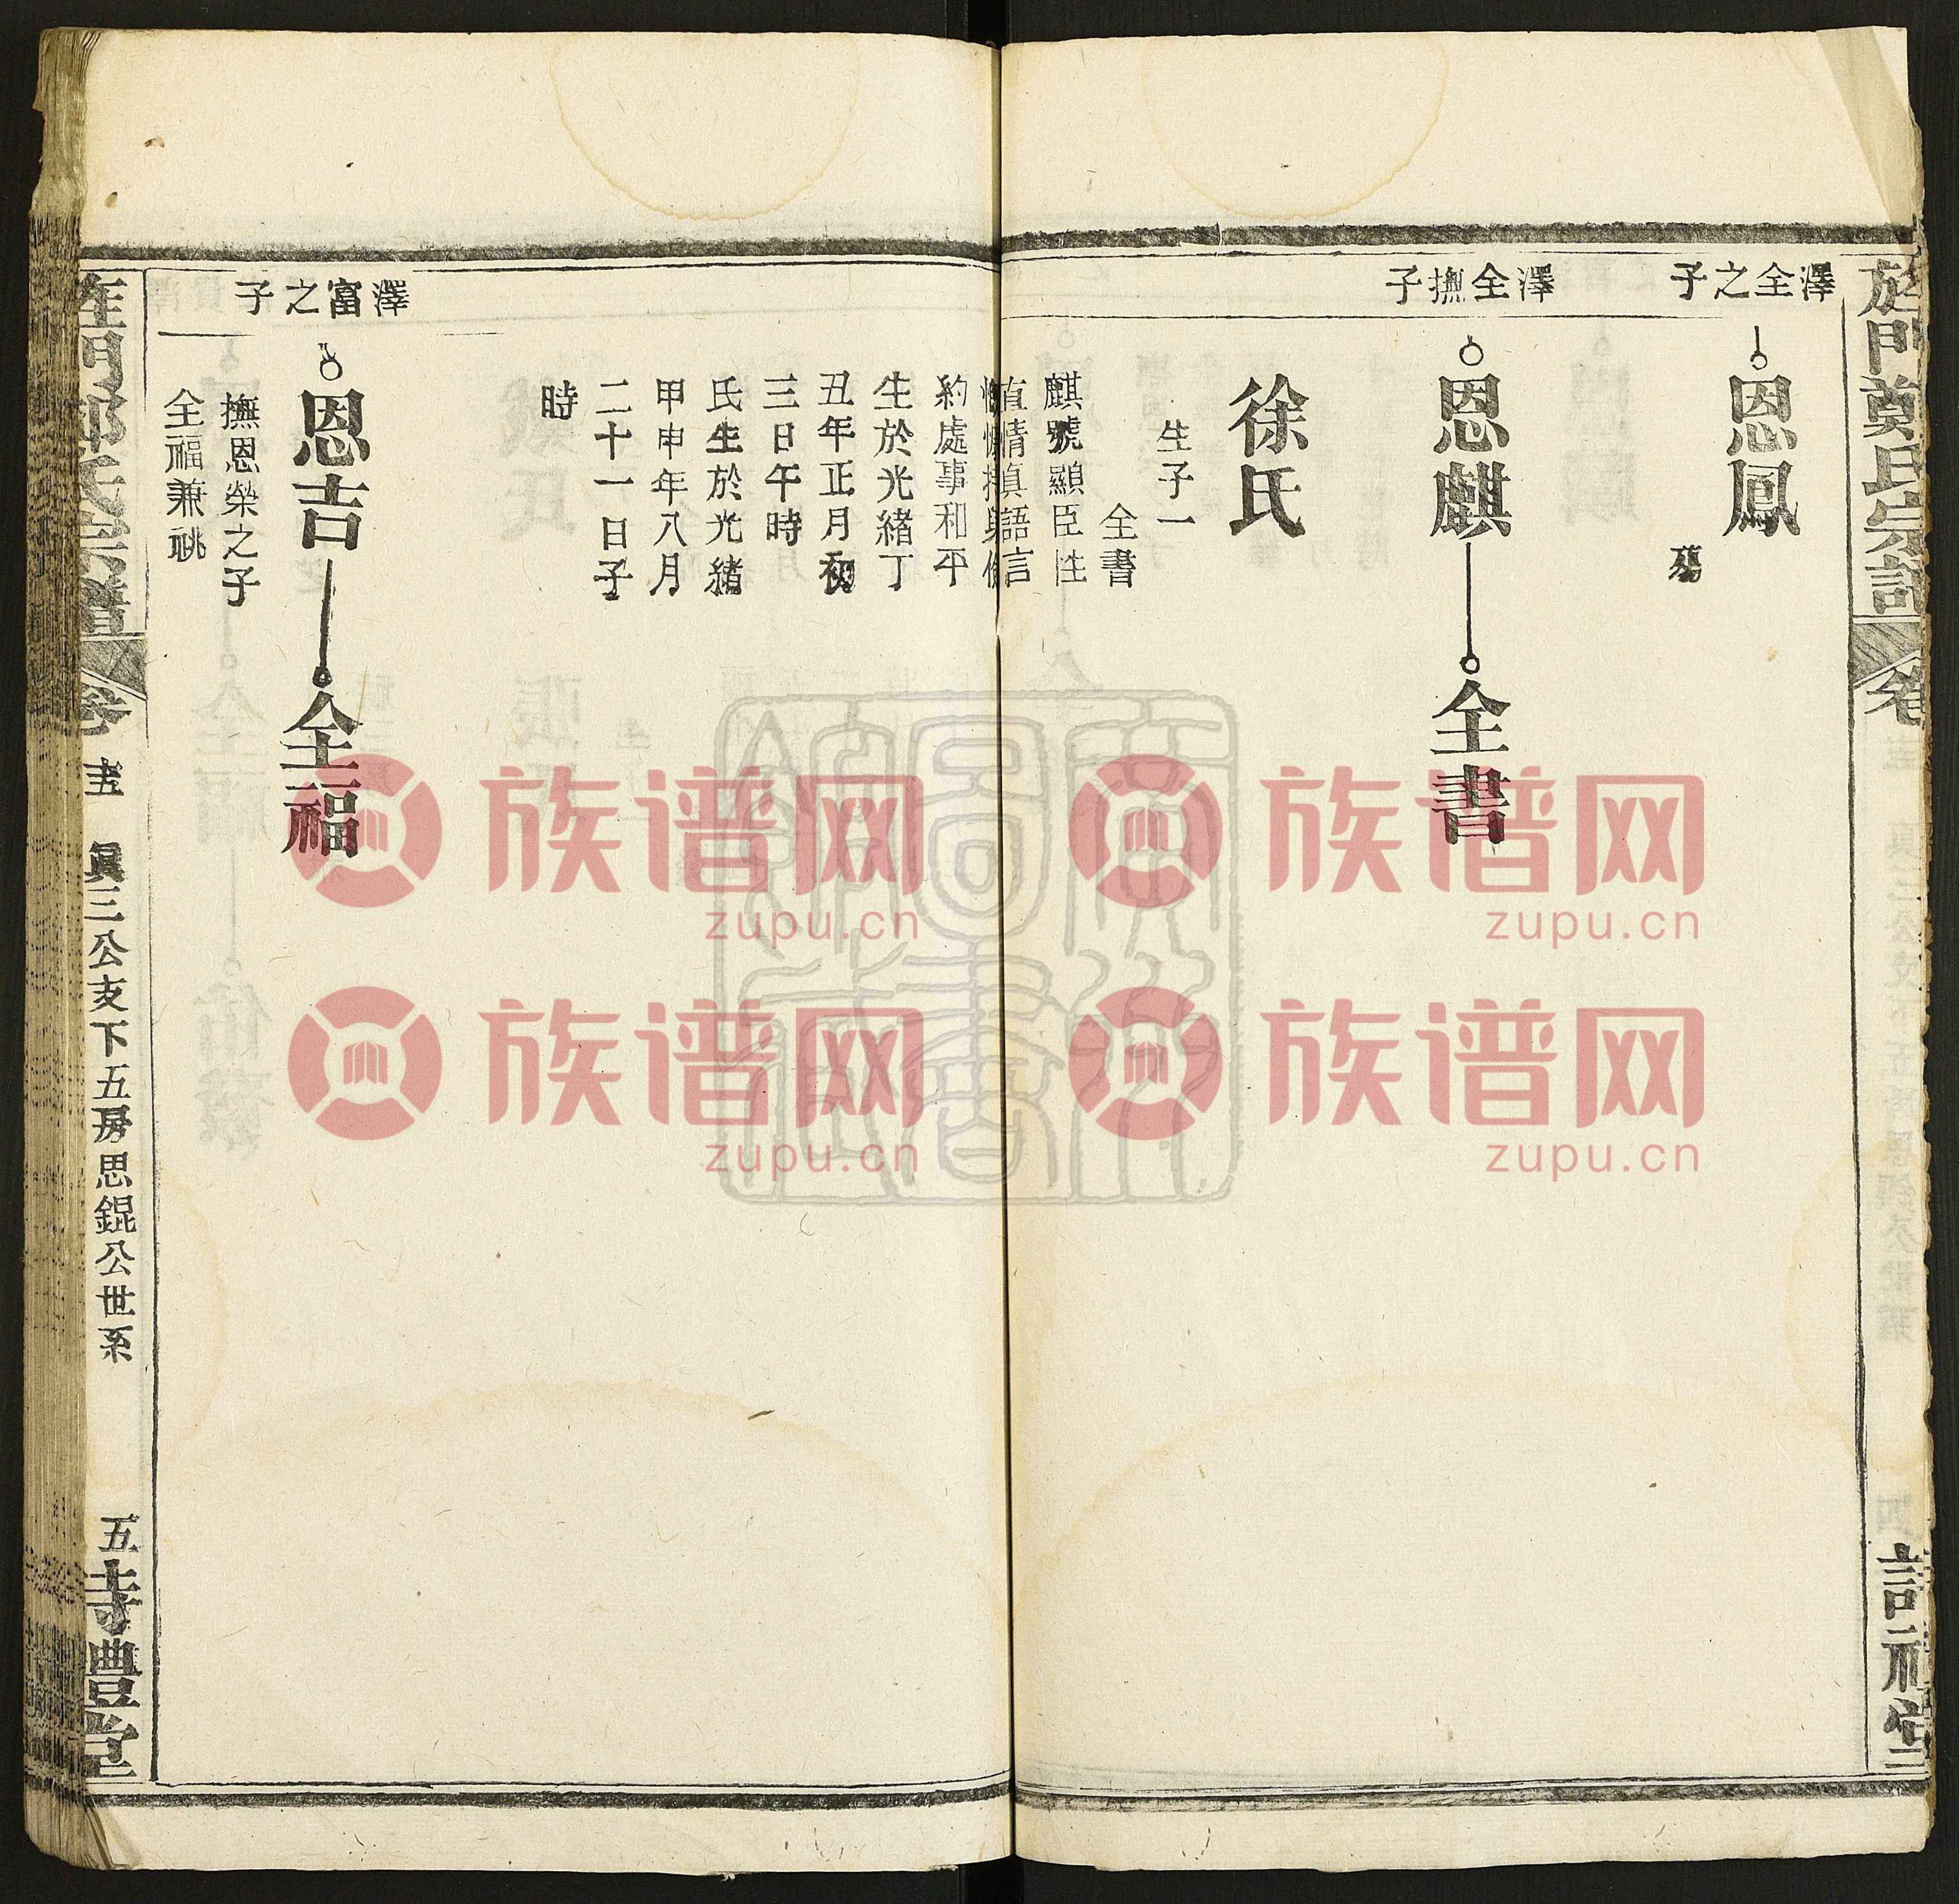 旌門鄭氏宗譜
卷
詩禮堂
澤全之子
恩鳳
殤
澤全撫子
恩麒
全書
徐氏
生子一
全書
麒號顯臣性
直情真語言
約處事和平
生於光緒丁
丑年正月初
三日午時
氏生於光緒
甲申年八月
二十一日子
時
澤富之子
恩吉
全福
撫恩榮之子
全福兼祧
旌門鄭氏宗譜
卷
真三公支下五房思錕公世系
五
詩禮堂
族谱网
zupu.cn
族谱网
zupu.cn
族谱网
zupu.cn
族谱网
zupu.cn